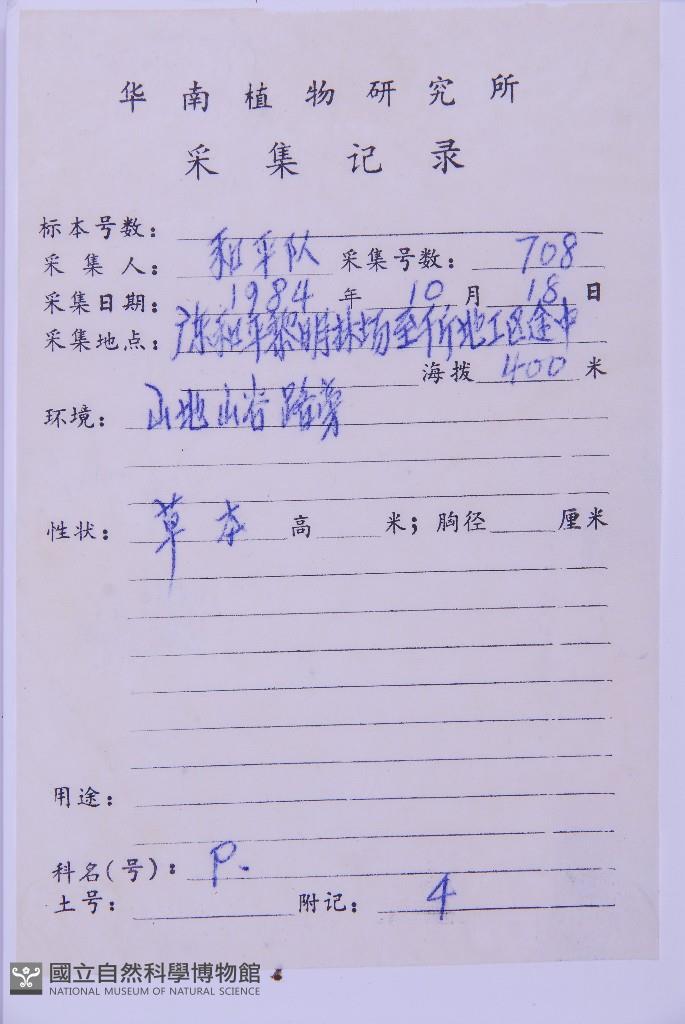 华南植物研究所
采集记录
标本号数：
采集人： 和平队 采集号数： 708
采集日期： 1984 年 10 月 18 日
采集地点： 广东和平黎明林场至 地工区途中
海拨 400 米
环境： 山地山谷路旁
性状： 草本 高 米；胸径 厘米
用途：
科名(号)： P.
土号： 附记： 4
國立自然科學博物館
NATIONAL MUSEUM OF NATURAL SCIENCE